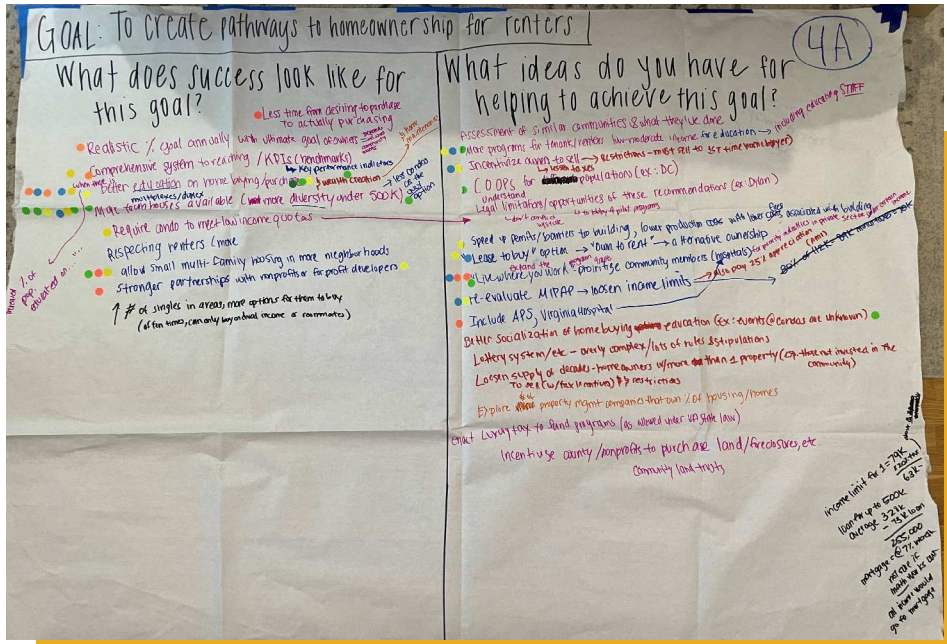 GOAL: To create pathways to homeownership for renters
4A
What does success look like for
this goal?
Less time from desiring to purchase
to actually purchasing
Realistic % goal annually with ultimate goal of owners
Comprehensive system to reaching /KPIs (benchmarks)
↳ Key performance indicators
& home maintenance
Better education on home buying/purchase
$ wealth creation
multiplexes/duplex
More townhouses available (more diversity/under 500K)
→ less condos as the only option
Require condo to meet low income quotas
Respecting renters /more
allow small multi-family housing in more nieghborhoods
stronger partnerships with nonprofits or for profit developers
↑ # of singles in areas, more options for them to buy
(often times, can only buy on dual income or roommates)
% of pop. educated on ...
What ideas do you have for
helping to achieve this goal?
Assessment of similar communities & what they've done
More programs for tenants/renters low-moderate income for education → including educating STAFF
Incentivize owners to sell → restrictions - must sell to 1st time homebuyer)
↳ less taxes
COOPS for populations (ex: DC)
Understand
Legal limitations/opportunities of these recommendations (ex: Dillon)
↳ to lobby & pilot programs
Speed up permits/barriers to building, lower production costs with lower fees associated with building
"Lease to buy" option → "own to rent" → alternative ownership
Live where you work
prioritize community members (hospitals)
also pay 25% appreciation
re-evaluate MIPAP → loosen income limits
(AMI)
Include APS, Virginia Hospital
Better socialization of home buying education (ex: events (@ condos are unknown)
Lottery system/etc - overly complex/lots of rules & stipulations
Loosen supply of decades-home owners w/more than 1 property (esp. those not invested in the
community)
To sell (w/tax incentives) restrictions
Explore property mgmt companies that own % of housing/homes
enact Luxury tax to fund programs (as allowed under VA state law)
Incentivize county/nonprofits to purchase land/foreclosures, etc
community land trusts
income limit for 1 = 79K
63K
loan for up to 500K
average 323K
- 73K loan
255,000
mortgage @ 7% interest
not sure if
math works out
all income would
go to mortgage